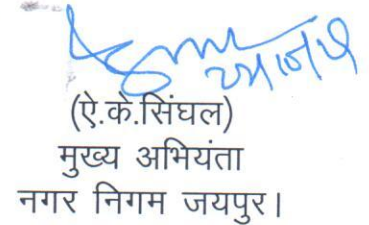 (ऐ.के.सिंघल)
मुख्य अभियंता
नगर निगम जयपुर।